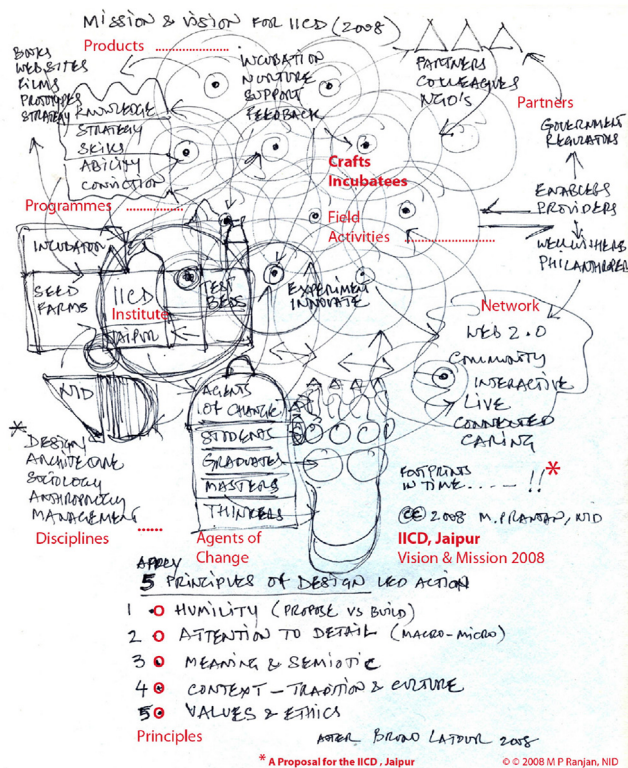 MISSION & VISION FOR IICD (2008)
Products ....................
BOOKS
WEBSITES
FILMS
PROTOTYPES
STRATEGY
INCUBATION
NURTURE
SUPPORT
FEEDBACK
PARTNERS
COLLEAGUES
NGO'S
Partners
KNOWLEDGE
STRATEGY
SKILLS
ABILITY
CONVICTION
GOVERNMENT
REGULATORS
Crafts
Incubatees
Programmes ...............
Field
Activities .......................
ENABLERS
PROVIDERS
WELLWISHERS
PHILANTHROPES
INCUBATION
SEED
FARMS
IICD
Institute
JAIPUR
TEST
BEDS
EXPERIMENT
INNOVATE
Network
WEB 2.0
COMMUNITY
INTERACTIVE
LIVE
CONNECTED
CARING
NID
AGENTS
OF CHANGE
STUDENTS
GRADUATES
MASTERS
THINKERS
* DESIGN
ARCHITECTURE
SOCIOLOGY
ANTHROPOLOGY
MANAGEMENT
Disciplines ......
Agents of
Change
FOOTPRINTS
IN TIME..... !! *
CC 2008 M.P RANJAN, NID
IICD, Jaipur
Vision & Mission 2008
APPLY
5 PRINCIPLES OF DESIGN LED ACTION
1 HUMILITY (PROPOSE VS BUILD)
2 ATTENTION TO DETAIL (MACRO-MICRO)
3 MEANING & SEMIOTIC
4 CONTEXT – TRADITION & CULTURE
5 VALUES & ETHICS
Principles
AFTER BRUNO LATOUR 2008
* A Proposal for the IICD , Jaipur
© © 2008 M P Ranjan, NID